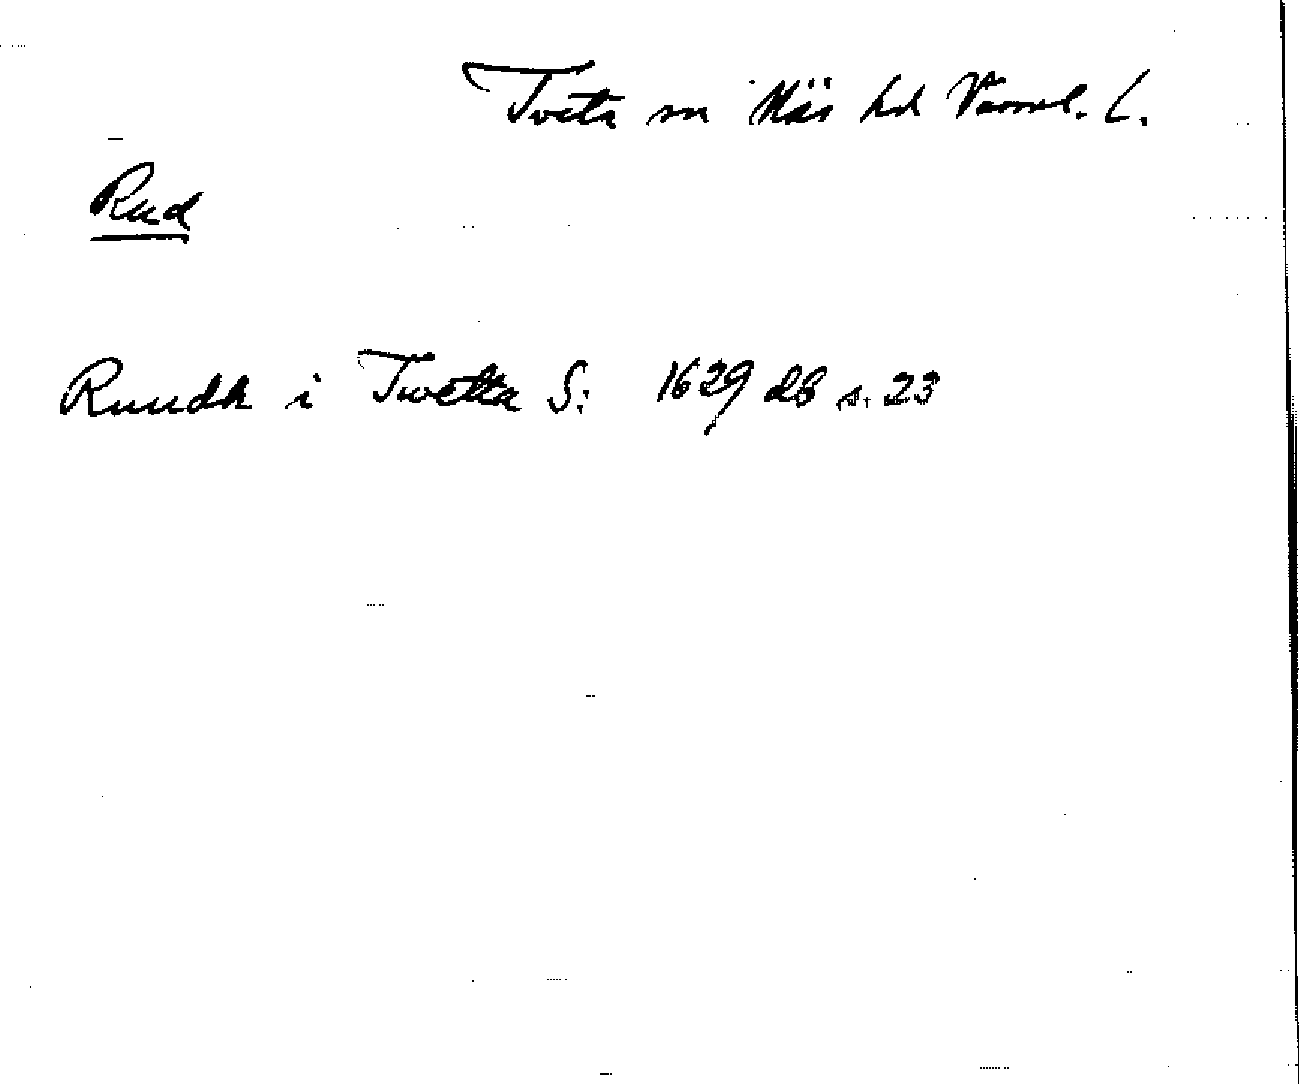 Tveta sn Näs hd Värml. L.
Rud
Ruudh i Twetta S: 1629 db s. 23